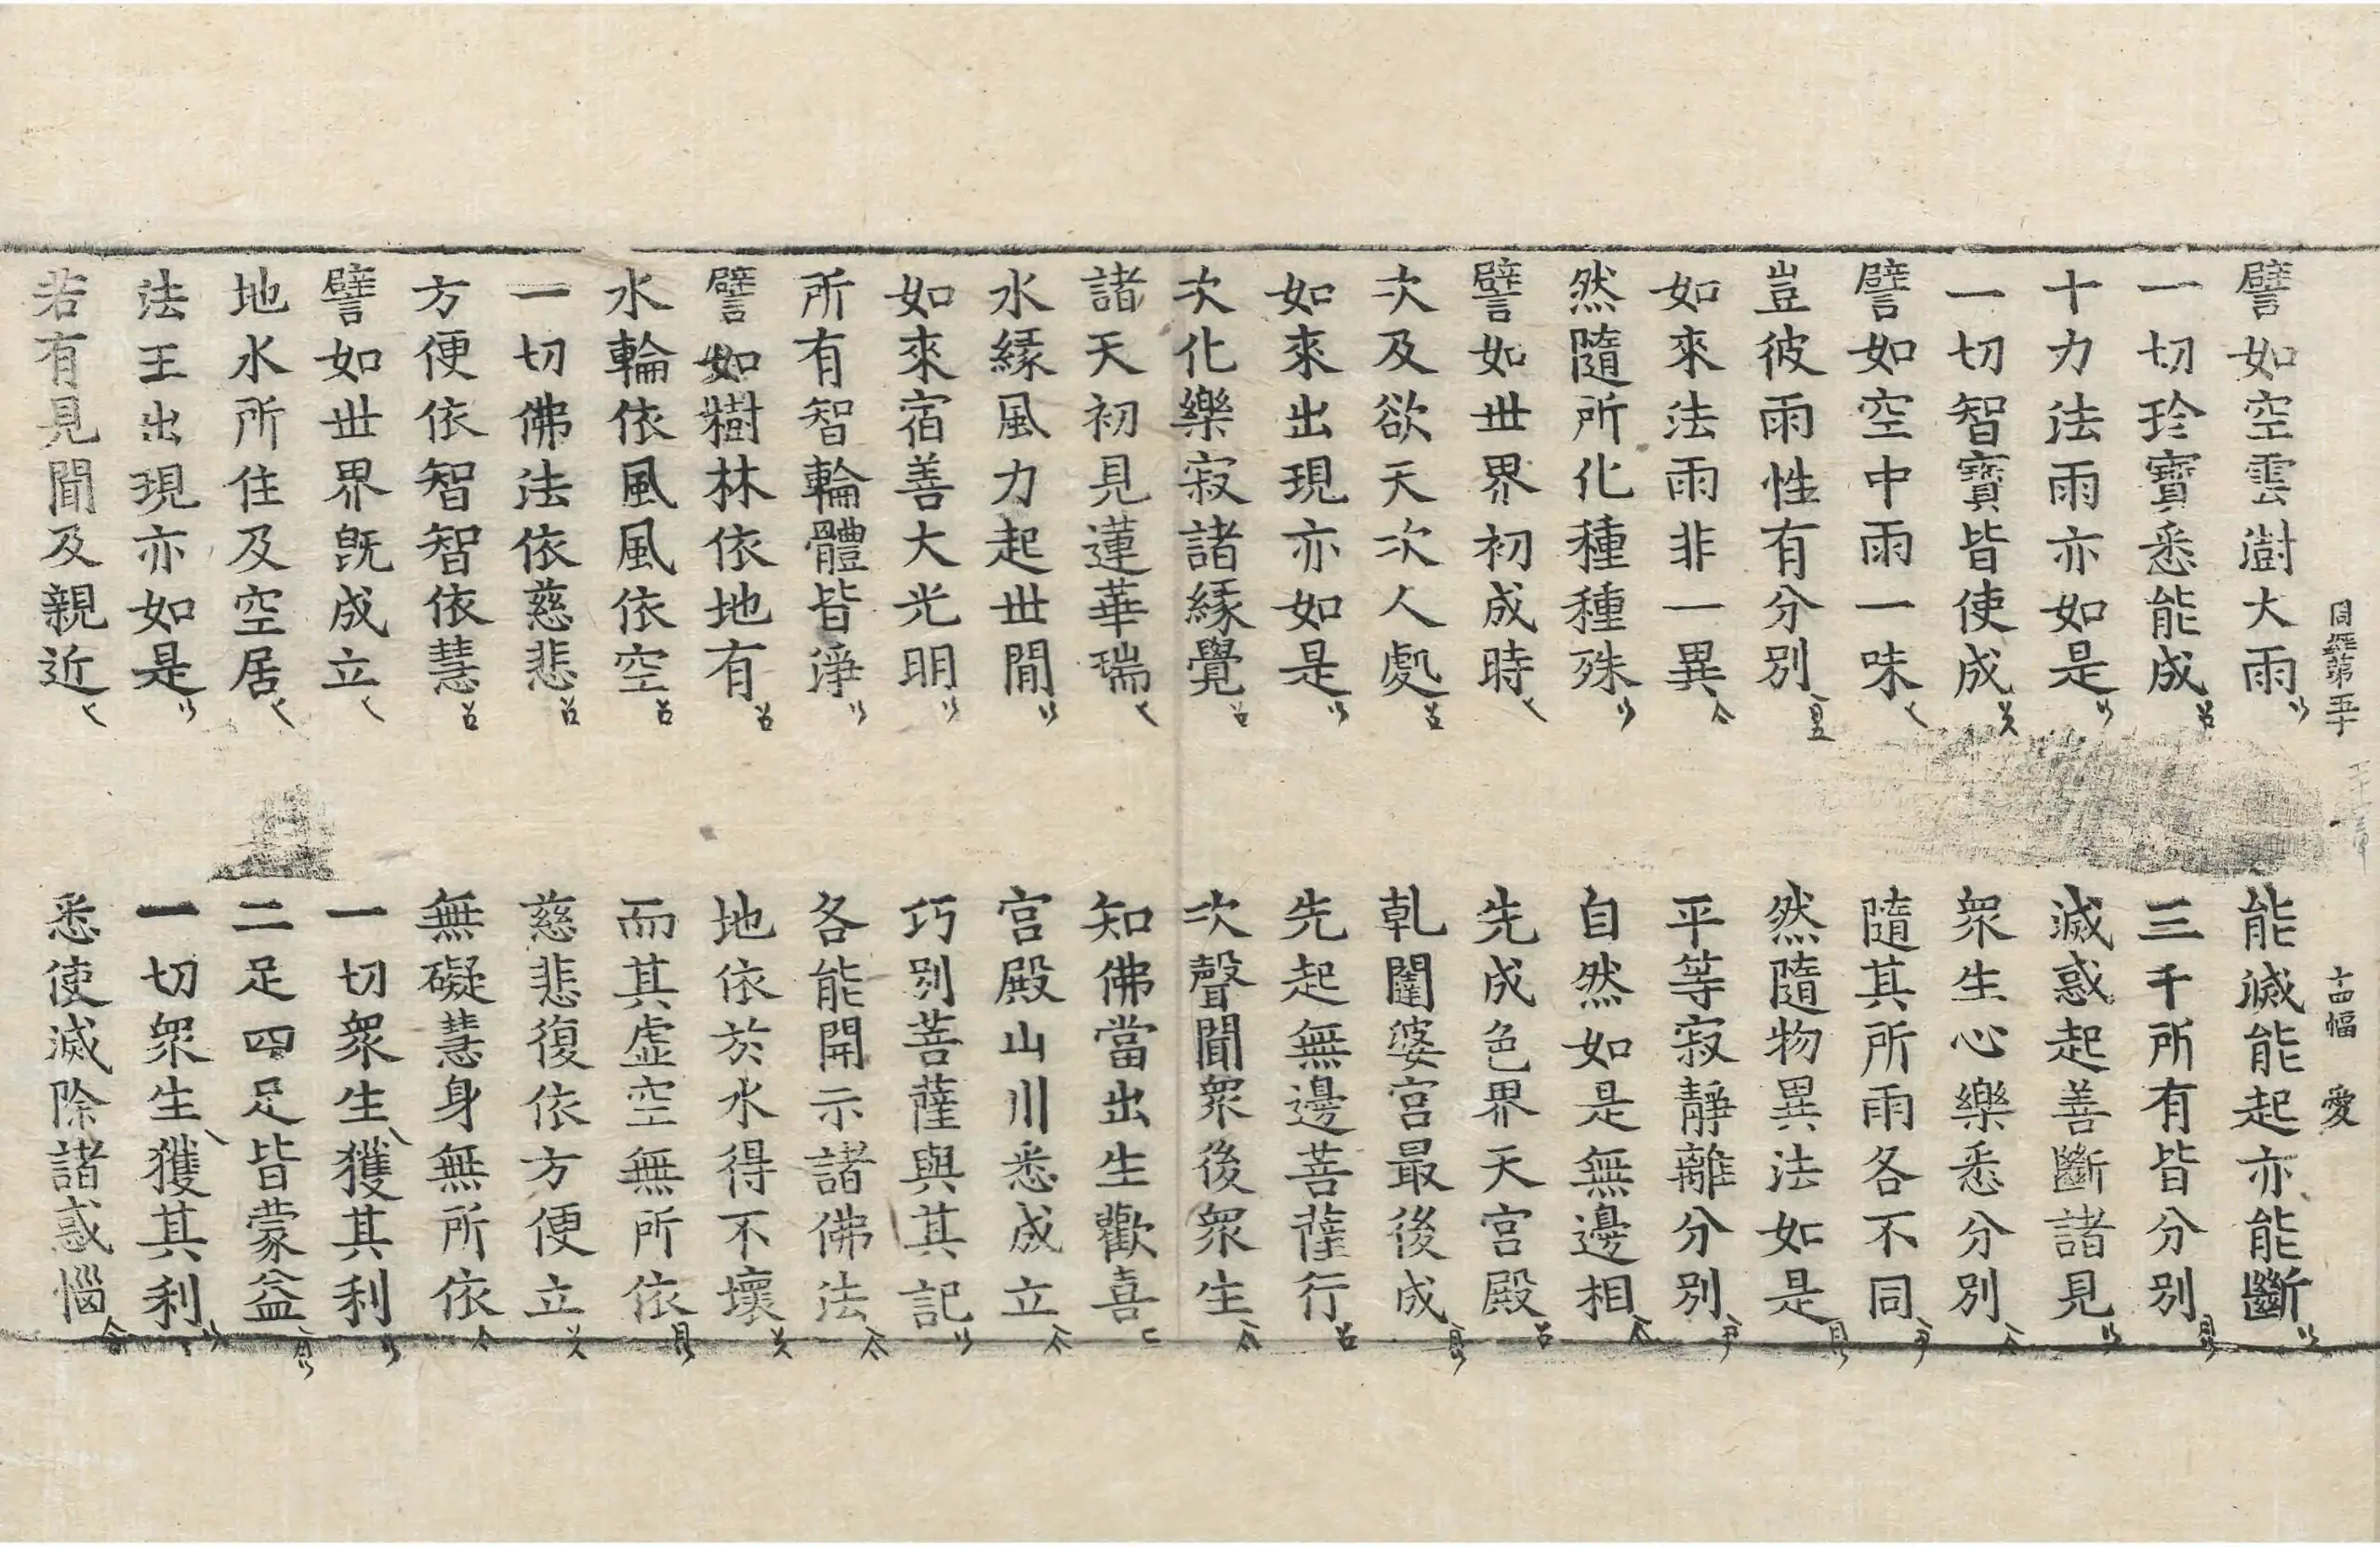 譬如空雲澍大雨 能滅能起亦能斷
一切珍寶悉能成 三千所有皆分別
十力法雨亦如是 滅惑起善斷諸見
一切智寶皆使成 衆生心樂悉分別
譬如空中雨一味 隨其所雨各不同
豈彼雨性有分別 然隨物異法如是
如來法雨非一異 平等寂靜離分別
然隨所化種種殊 自然如是無邊相
譬如世界初成時 先成色界天宮殿
次及欲天次人處 乹闥婆宮最後成
如來出現亦如是 先起無邊菩薩行
次化樂寂諸緣覺 次聲聞衆後衆生
諸天初見蓮華瑞 知佛當出生歡喜
水緣風力起世間 宮殿山川悉成立
如來宿善大光明 巧別菩薩與其記
所有智輪體皆淨 各能開示諸佛法
譬如樹林依地有 地依於水得不壞
水輪依風風依空 而其虛空無所依
一切佛法依慈悲 慈悲復依方便立
方便依智智依慧 無礙慧身無所依
譬如世界旣成立 一切衆生獲其利
地水所住及空居 二足四足皆蒙益
法王出現亦如是 一切衆生獲其利
若有見聞及親近 悉使滅除諸惑惱
周經第五十 十四幅 愛